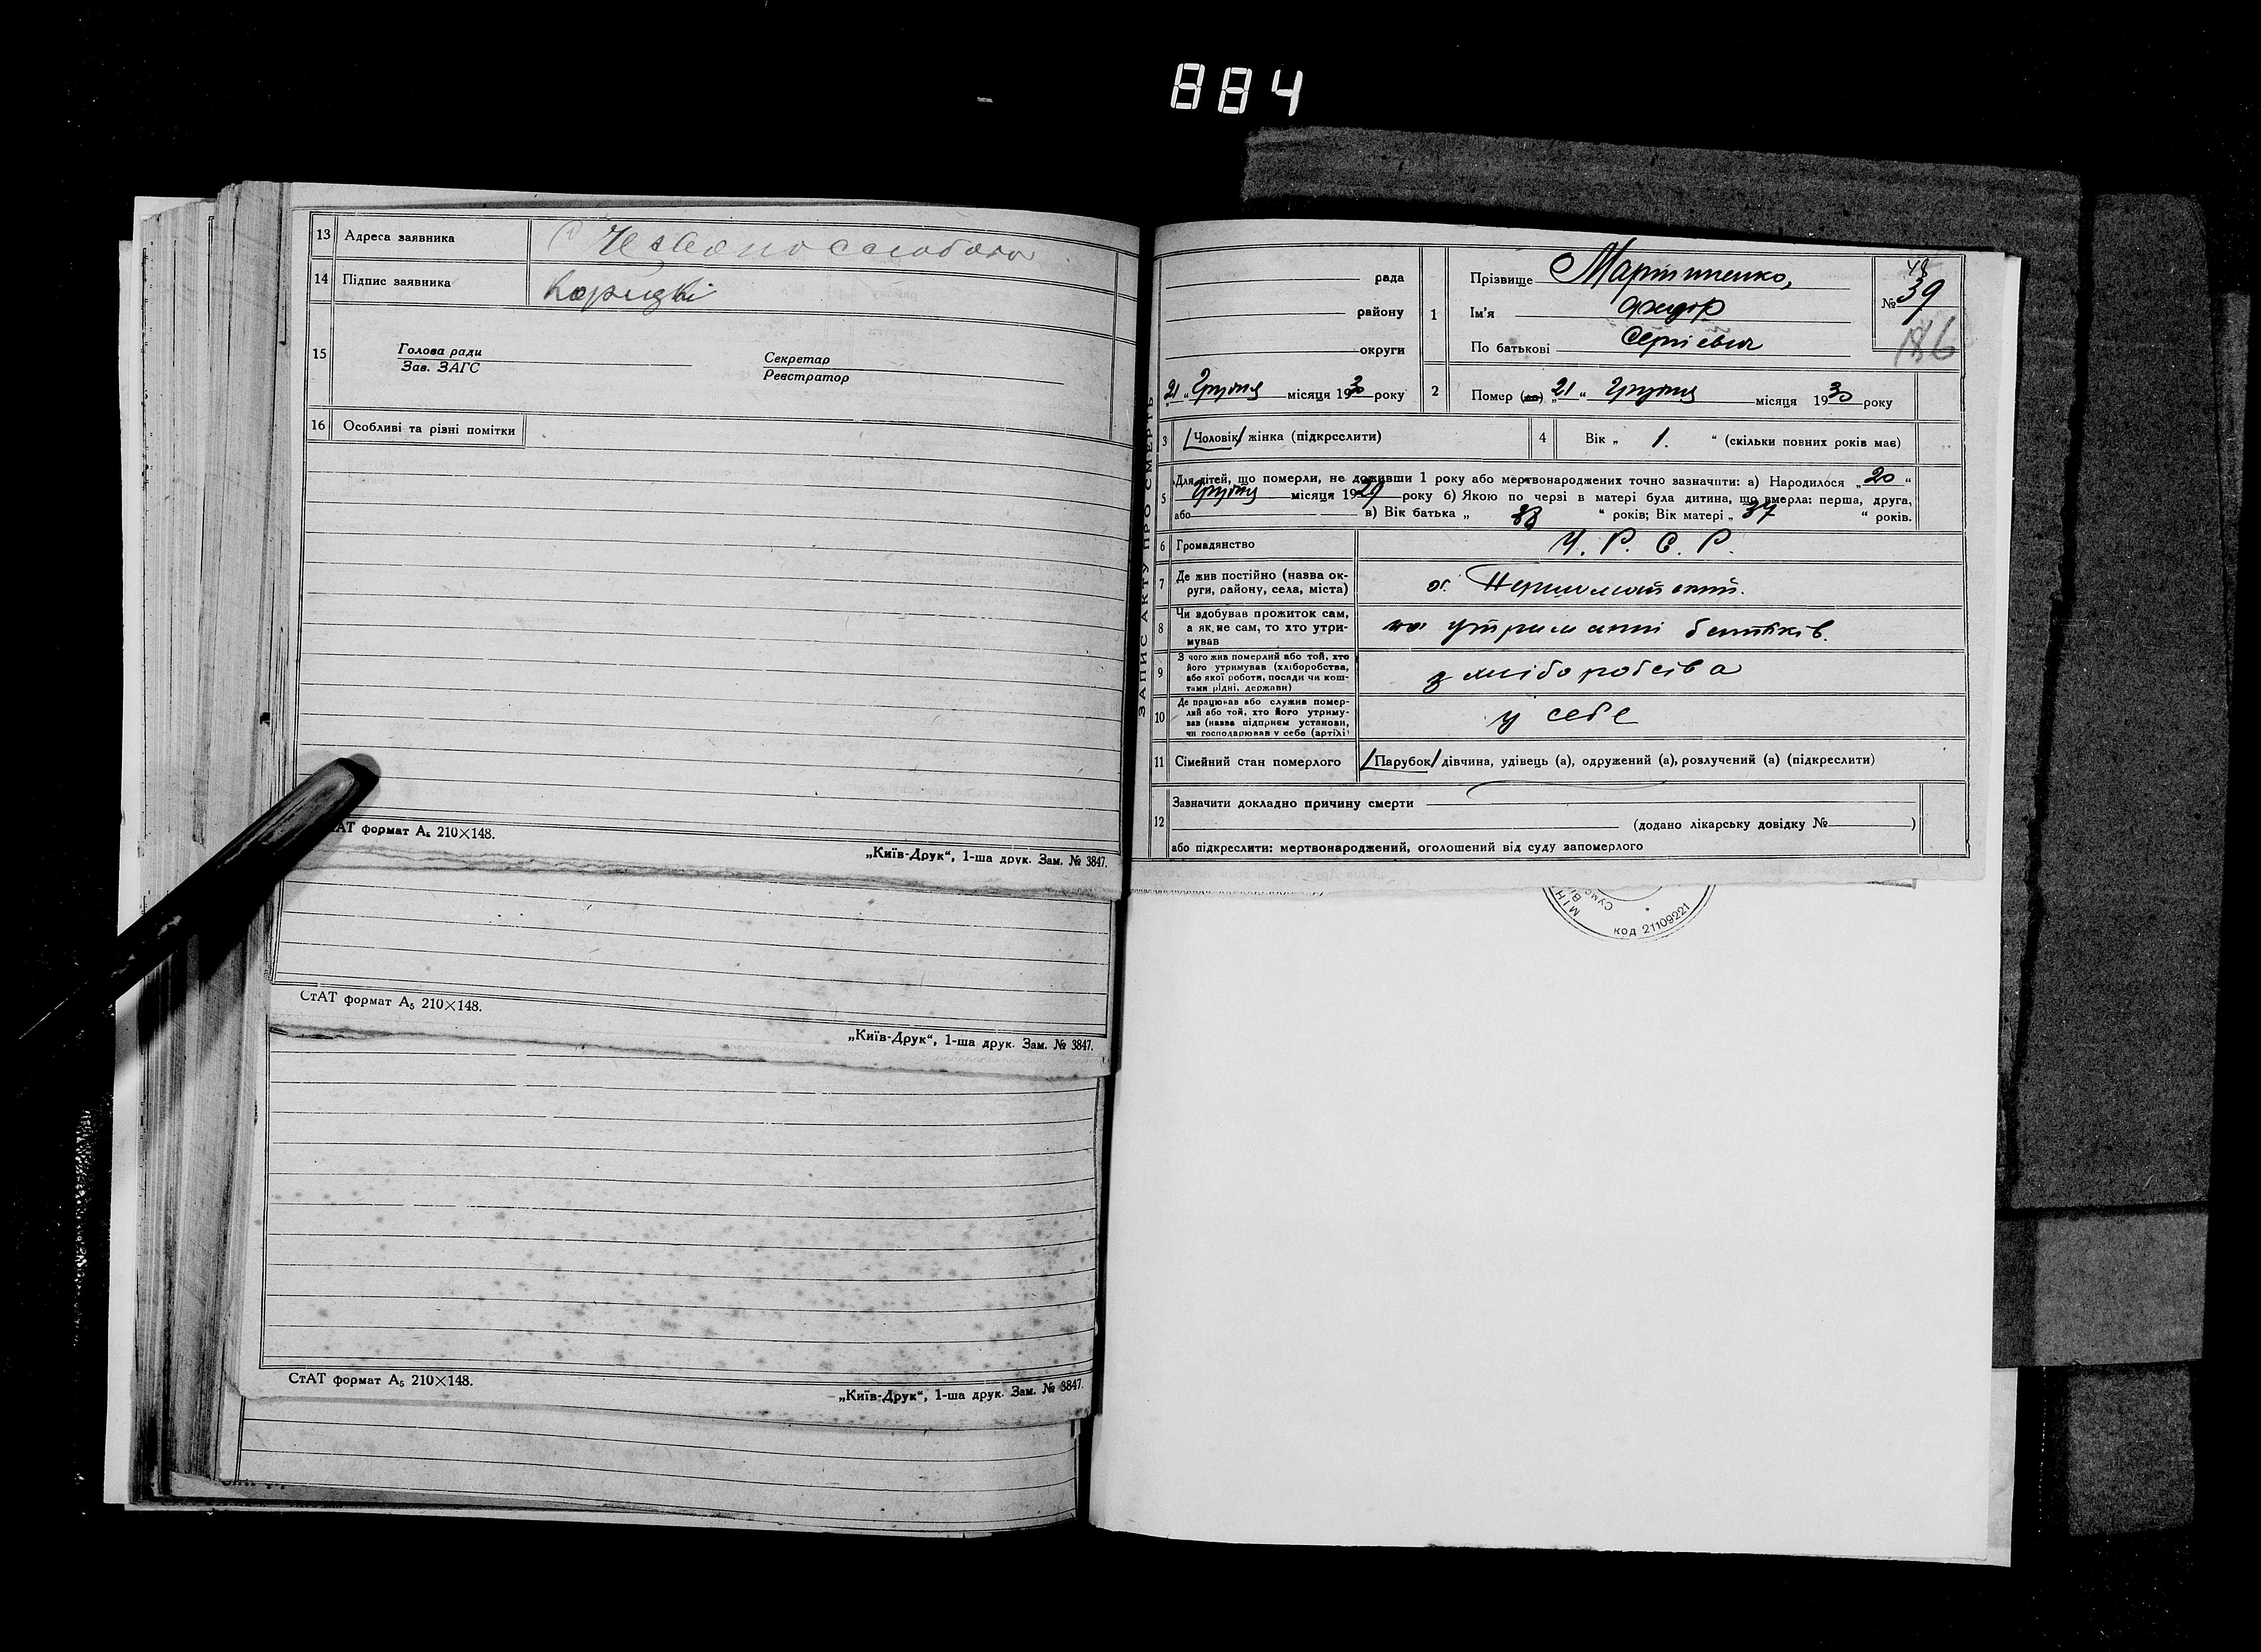 884
13 Адреса заявника
14 Підпис заявника Корицкі
15 Голова ради
Зав. ЗАГС
Секретар
Реєстратор
16 Особливі та різні помітки
СтАТ формат А5 210×148.
„Київ-Друк“, 1-ша друк. Зам. № 3847.
СтАТ формат А5 210×148.
„Київ-Друк“, 1-ша друк. Зам. № 3847.
СтАТ формат А5 210×148.
„Київ-Друк“, 1-ша друк. Зам. № 3847.
ЗАПИС АКТУ ПРО СМЕРТЬ
рада
району
округи
21 „Грудня місяця 1930 року
1 Прізвище Мартиненко,
Ім'я Федір
По батькові Сергієвич
48
№ 39
186
2 Помер (ла) „21“ Грудня місяця 1930 року
3 Чоловік/ жінка (підкреслити)
4 Вік „ 1. “ (скільки повних років має)
5 Для дітей, що померли, не доживши 1 року або мертвонароджених точно зазначити: а) Народилося „20“
Грудня місяця 1929 року б) Якою по черзі в матері була дитина, що вмерла: перша, друга,
або в) Вік батька „ 38 “ років; Вік матері „ 37 “ років.
6 Громадянство У. Р. С. Р.
7 Де жив постійно (назва ок-
руги, району, села, міста)
х. Першомайський.
8 Чи здобував прожиток сам,
а як не сам, то хто утри-
мував
на утриманні батьків.
9 З чого жив померлий або той, хто
його утримував (хліборобства,
або якої роботи, посади чи кош-
тами рідні, держави)
з хліборобсва
10 Де працював або служив помер-
лий або той, хто його утриму-
вав (назва підприєм установи,
чи господарював у себе (артілі)
у себе
11 Сімейний стан померлого
Парубок/ дівчина, удівець (а), одружений (а), розлучений (а) (підкреслити)
12 Зазначити докладно причину смерти
(додано лікарську довідку № )
або підкреслити: мертвонароджений, оголошений від суду запомерлого
код 21109221